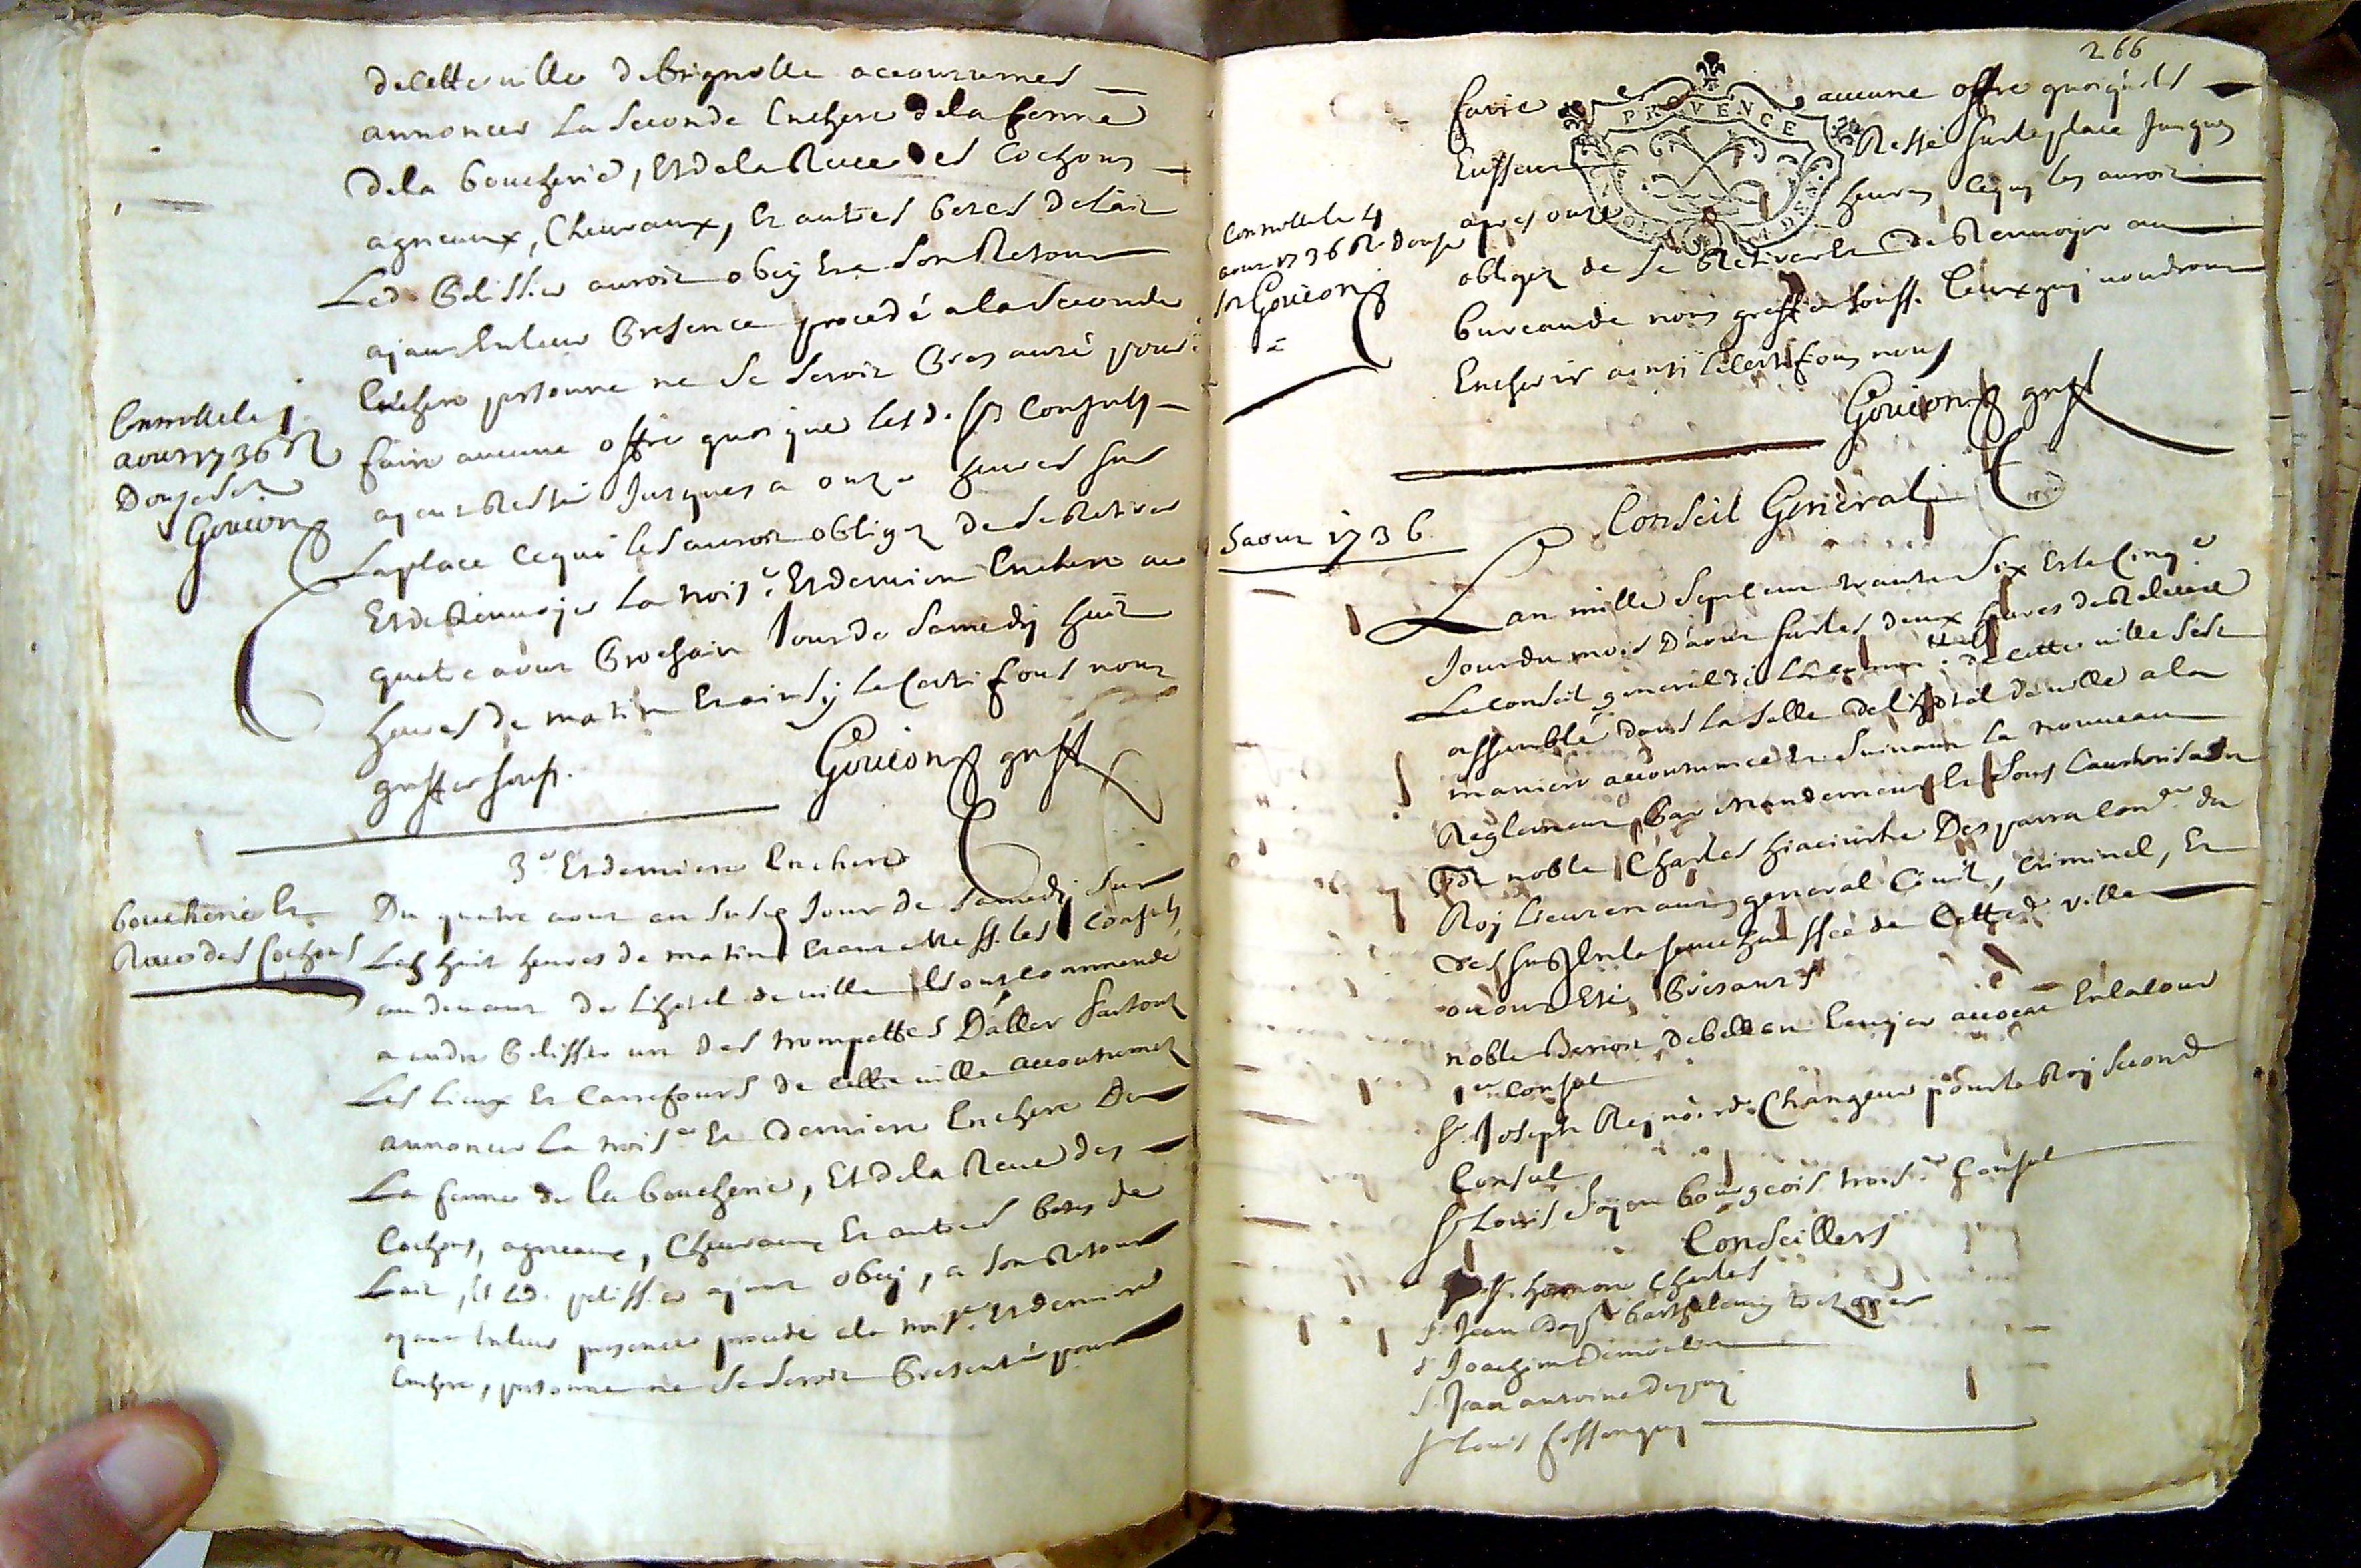 de cette ville de brignolle accoutumes
annoncer la seconde Enchere de la ferme
de la boucherie, Et de la Reue des Cochons
agneaux, Chevraux, Et autres betes de lait
Led. Pelissier auroit obey Et a son Retour
ajant En leur Presence procedé a la seconde
Enchere personne ne se seroit Presanté pour
faire aucune offre quoi que lesd. srs Consuls
ayent Resté Jusques a onze heures sur
La place Ce qui les auroit obligez de se Retirer
Et de Renvoyer la trois.e Et derniere Enchere au
quatre aout Prochain Jour de Samedy huit
heures de matin Et ainsy le Certifions nous
greffier souss.
Gouiong greff
Controllé le j
aout 1736 R
Gouiong
3.e Et derniere Enchere
boucherie Et
Reue des Cochons
Du quatre aout an susd Jour de Samedi sur
Les huit heures de matin Etant Mess. les Consuls
au devant de L'hotel de ville Ils ont commandé
a andre Pelissier un des trompettes D'aller partout
Les lieux Et Carrefours de cette ville accoutumez
annoncer La trois.e Et Derniere Enchere De
La ferme de la boucherie, Et de la Reue des
Cochons, agneaux, Chevraux Et autres betes de
Lait, Et led. pelissier ayant obey, a son Retour
ayant En leur presence procedé a la trois.e Et derniere
Enchere, personne ne se seroit Presenté pour
266
PROVENCE
faire aucune offre quoiqu'ils
Eussent Resté sur la place Jusques
apres onze heures, Ce qui les auroit
obligez de se Retirer Et de Renvoyer au
bureau de nous greffier souss. Ceux qui voudront
Encherir ainsi le Certifions nous
Gouiong greff
Controllé le 4
aout 1736 R Douze
Gouiong
Conseil General
5 aout 1736
L'an mille sept cent trante six Et le Cinq.e
Jour du mois D'aout sur les deux heures de Relevée
Le Conseil general de la Commun.té de cette ville s'est
assemblé dans la salle de l'hotel de ville a la
maniere accoutumée Et suivant le nouveau
Reglement, Par Mandement Et sous l'authorisation
de noble Charles hiacinthe Desparra Con.er du
Roy Lieutenant general Civil, Criminel, Et
des en la senechaussée de Cette d. ville
ou ont Eté Presants
noble Benoit de bellon Ecuyer avocat En la cour
1.er Consul
Sr. Joseph Reynoird Changeur pour le Roy second
Consul
Sr Louis bourgeois trois.e Consul
Conseillers
honoré Charles
s. Jean Bap.te barthelemy
s. Joachim
s. Jean antoine
Sr Louis fossenquy